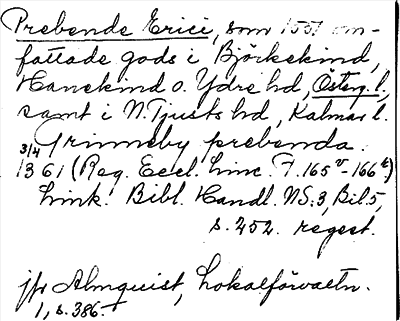 Prebende Erici, som 1551 om-
fattade gods i Björkekind,
Hanekind o. Ydre hd, Österg. l.,
samt i N. Tjusts hd, Kalmar l.
Grimmeby prebenda.
3/4
1361 (Reg. Eccl. Linc. F. 165v-166r)
Link. Bibl. Handl. NS:3, Bil. 5,
s. 252. regest.
jfr Almquist, Lokalförvaltn.
1, s. 386.